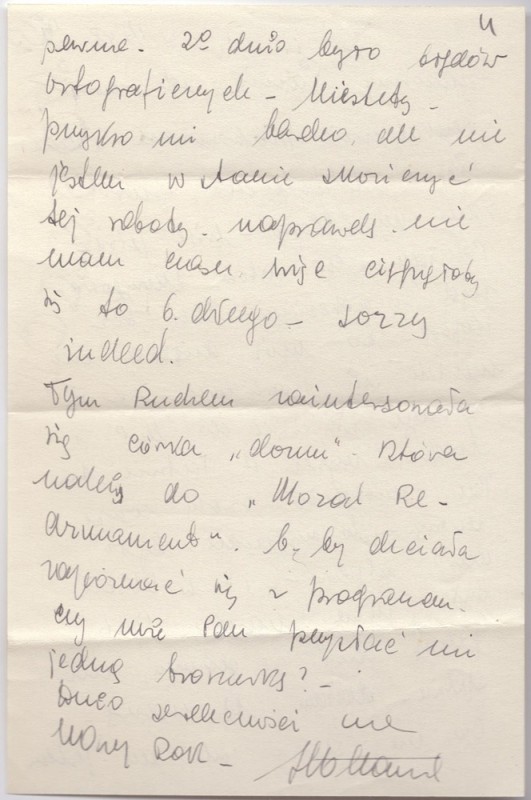 4
pewne. 2º dużo było błędów
ortograficznych – Niestety –
przykro mi bardzo, ale nie
jestem w stanie skończyć
tej roboty. naprawdę. nie
mam czasu więc ciągnęłoby
się to b. długo – sorry
indeed.
Tym Ruchem zainteresowała
się córka „domu" która
należy do „Moral Re-
armament". b. by chciała
zapoznać się z programem.
czy może Pan przysłać mi
jedną broszurkę? –
Dużo serdeczności na
Nowy Rok –